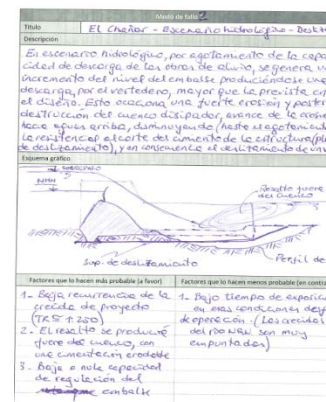 Modo de fallo 2
Título
El Chañar - Escenario hidrológico - Desliz
Descripción
En escenario hidrológico, por agotamiento de la capa
cidad de descarga de las obras de alivio, se genera un
incremento del nivel del embalse produciéndose una
descarga, por el vertedero, mayor que la prevista en
el diseño. Esto ocaciona una fuerte erosión y poster
destrucción del cuenco disipador, avance de la erosión
hacia aguas arriba, disminuyendo (hasta el agotamiento
la resistencia al corte del cimiento de la estructura (pl
de deslizamiento), y en consecuencia el deslizamiento de un
Esquema gráfico
NMN
Resalto fuera
del cuenco
Sup. de deslizamiento
Perfil de
Factores que lo hacen más probable (a favor)
Factores que lo hacen menos probable (en contra
1- Baja recurrencia de la
crecida de proyecto
(TR
2- El resalto se produciría
fuera del cuenco, con
una cimentación erodable
3- Baja o nula capacidad
de regulación del
embalse
1- Bajo tiempo de exposici
en esas condiciones desf
de operación. (Las crecidas
del río NQN son muy
empuntadas)